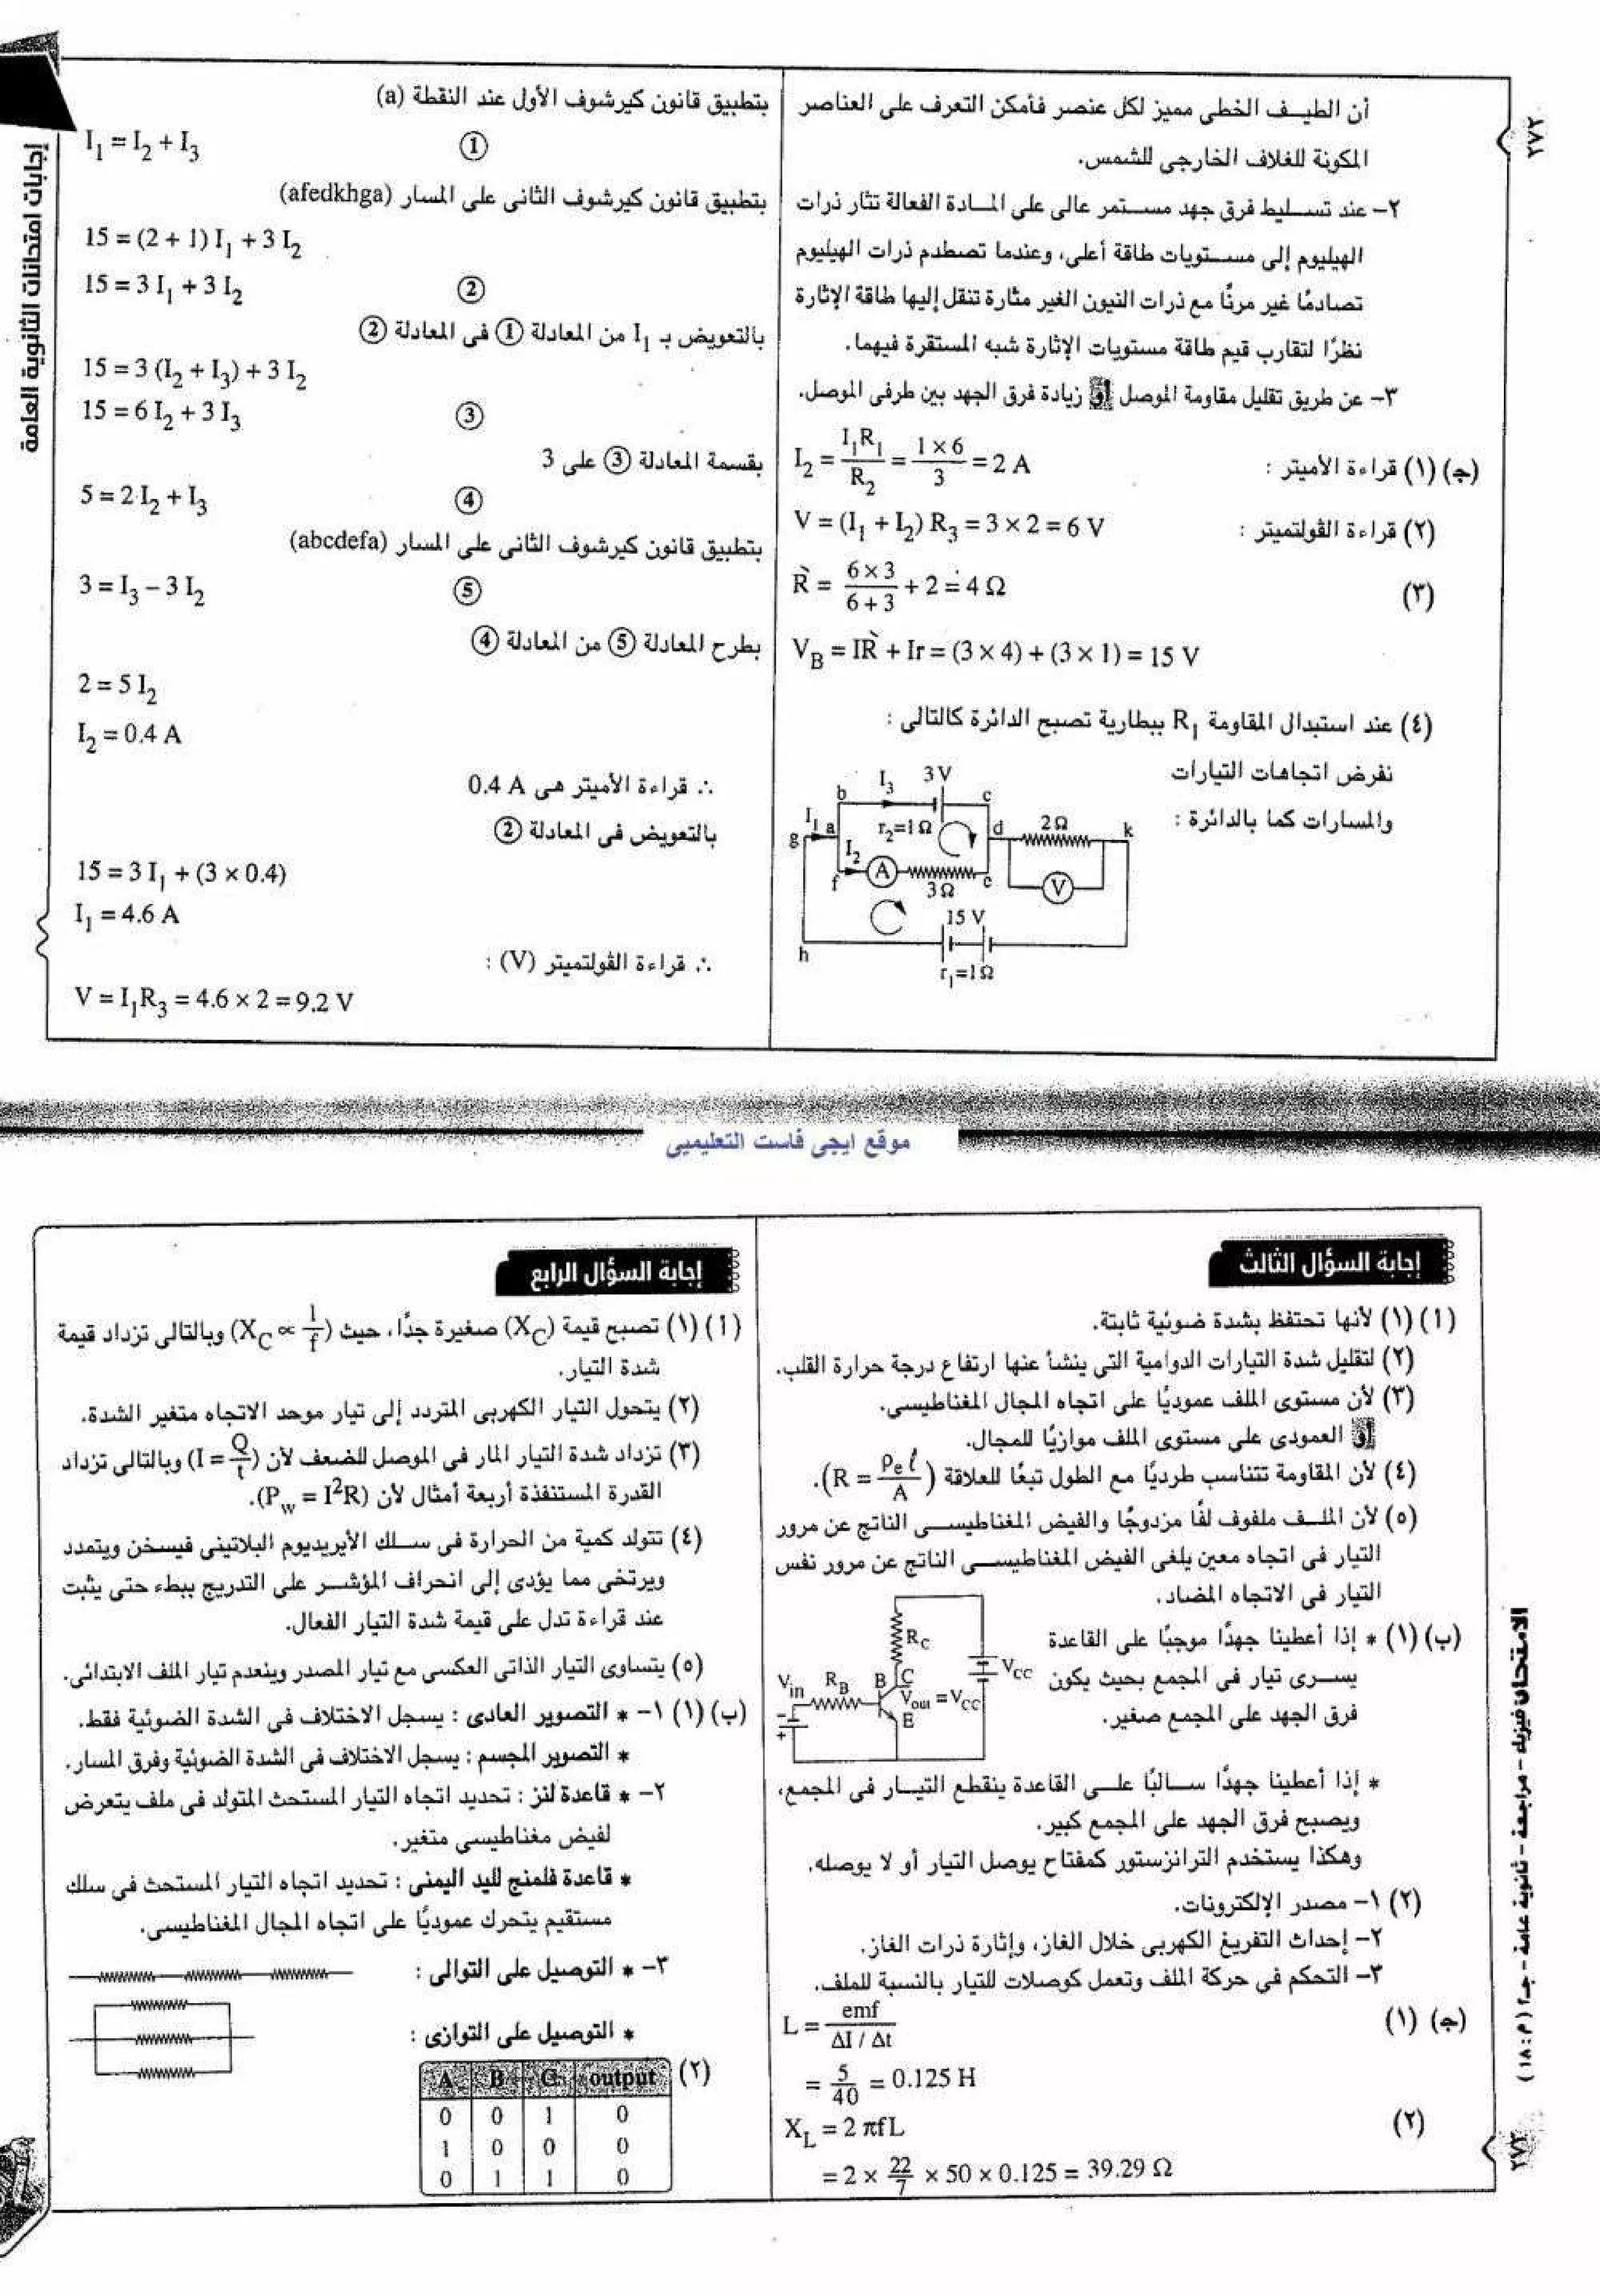 ٢٧٢
أن الطيف الخطى مميز لكل عنصر فأمكن التعرف على العناصر
المكونة للغلاف الخارجى للشمس.
٢- عند تسليط فرق جهد مستمر عالى على المادة الفعالة تثار ذرات
الهيليوم إلى مستويات طاقة أعلى، وعندما تصطدم ذرات الهيليوم
تصادمًا غير مرنًا مع ذرات النيون الغير مثارة تنقل إليها طاقة الإثارة
نظرًا لتقارب قيم طاقة مستويات الإثارة شبه المستقرة فيهما.
٣- عن طريق تقليل مقاومة الموصل أو زيادة فرق الجهد بين طرفى الموصل.
(جـ) (١) قراءة الأميتر : I₂ = I₁R₁ / R₂ = 1 × 6 / 3 = 2 A
(٢) قراءة الڤولتميتر : V = (I₁ + I₂) R₃ = 3 × 2 = 6 V
(٣) R̀ = 6 × 3 / 6 + 3 + 2 = 4 Ω
V_B = IR̀ + Ir = (3 × 4) + (3 × 1) = 15 V
(٤) عند استبدال المقاومة R₁ ببطارية تصبح الدائرة كالتالى :
نفرض اتجاهات التيارات
والمسارات كما بالدائرة :
b I₃ 3 V c
I₁ a r₂=1 Ω d 2 Ω k
g I₂
f A 3 Ω e V
15 V
h r₁=1 Ω
إجابات امتحانات الثانوية العامة
بتطبيق قانون كيرشوف الأول عند النقطة (a)
I₁ = I₂ + I₃ ①
بتطبيق قانون كيرشوف الثانى على المسار (afedkhga)
15 = (2 + 1) I₁ + 3 I₂
15 = 3 I₁ + 3 I₂ ②
بالتعويض بـ I₁ من المعادلة ① فى المعادلة ②
15 = 3 (I₂ + I₃) + 3 I₂
15 = 6 I₂ + 3 I₃ ③
بقسمة المعادلة ③ على 3
5 = 2 I₂ + I₃ ④
بتطبيق قانون كيرشوف الثانى على المسار (abcdefa)
3 = I₃ – 3 I₂ ⑤
بطرح المعادلة ⑤ من المعادلة ④
2 = 5 I₂
I₂ = 0.4 A
∴ قراءة الأميتر هى 0.4 A
بالتعويض فى المعادلة ②
15 = 3 I₁ + (3 × 0.4)
I₁ = 4.6 A
∴ قراءة الڤولتميتر (V) :
V = I₁R₃ = 4.6 × 2 = 9.2 V
موقع ايجى فاست التعليميى
إجابة السؤال الثالث
(أ) (١) لأنها تحتفظ بشدة ضوئية ثابتة.
(٢) لتقليل شدة التيارات الدوامية التى ينشأ عنها ارتفاع درجة حرارة القلب.
(٣) لأن مستوى الملف عموديًا على اتجاه المجال المغناطيسى.
أو العمودى على مستوى الملف موازيًا للمجال.
(٤) لأن المقاومة تتناسب طرديًا مع الطول تبعًا للعلاقة (R = ρₑ ℓ / A).
(٥) لأن الملف ملفوف لفًا مزدوجًا والفيض المغناطيسى الناتج عن مرور
التيار فى اتجاه معين يلغى الفيض المغناطيسى الناتج عن مرور نفس
التيار فى الاتجاه المضاد.
(ب) (١) * إذا أعطينا جهدًا موجبًا على القاعدة
يسرى تيار فى المجمع بحيث يكون
فرق الجهد على المجمع صغير.
R_C
V_in R_B B C V_CC
V_out = V_CC
E
* إذا أعطينا جهدًا سالبًا على القاعدة ينقطع التيار فى المجمع،
ويصبح فرق الجهد على المجمع كبير.
وهكذا يستخدم الترانزستور كمفتاح يوصل التيار أو لا يوصله.
(٢) ١- مصدر الإلكترونات.
٢- إحداث التفريغ الكهربى خلال الغاز، وإثارة ذرات الغاز.
٣- التحكم فى حركة الملف وتعمل كوصلات للتيار بالنسبة للملف.
(جـ) (١) L = emf / ΔI / Δt
= 5 / 40 = 0.125 H
(٢) X_L = 2 πfL
= 2 × 22/7 × 50 × 0.125 = 39.29 Ω
إجابة السؤال الرابع
(أ) (١) تصبح قيمة (X_C) صغيرة جدًا، حيث (X_C ∝ 1/f) وبالتالى تزداد قيمة
شدة التيار.
(٢) يتحول التيار الكهربى المتردد إلى تيار موحد الاتجاه متغير الشدة.
(٣) تزداد شدة التيار المار فى الموصل للضعف لأن (I = Q/t) وبالتالى تزداد
القدرة المستنفذة أربعة أمثال لأن (P_w = I²R).
(٤) تتولد كمية من الحرارة فى سلك الأيريديوم البلاتينى فيسخن ويتمدد
ويرتخى مما يؤدى إلى انحراف المؤشر على التدريج ببطء حتى يثبت
عند قراءة تدل على قيمة شدة التيار الفعال.
(٥) يتساوى التيار الذاتى العكسى مع تيار المصدر وينعدم تيار الملف الابتدائى.
(ب) (١) ١- * التصوير العادى : يسجل الاختلاف فى الشدة الضوئية فقط.
* التصوير المجسم : يسجل الاختلاف فى الشدة الضوئية وفرق المسار.
٢- * قاعدة لنز : تحديد اتجاه التيار المستحث المتولد فى ملف يتعرض
لفيض مغناطيسى متغير.
* قاعدة فلمنج لليد اليمنى : تحديد اتجاه التيار المستحث فى سلك
مستقيم يتحرك عموديًا على اتجاه المجال المغناطيسى.
٣- * التوصيل على التوالى :
* التوصيل على التوازى :
(٢) A B C output
0 0 1 0
1 0 0 0
0 1 1 0
الامتحان فيزياء - مراجعة - ثانوية عامة - جـ٢ (م : ١٨)
٢٧٣